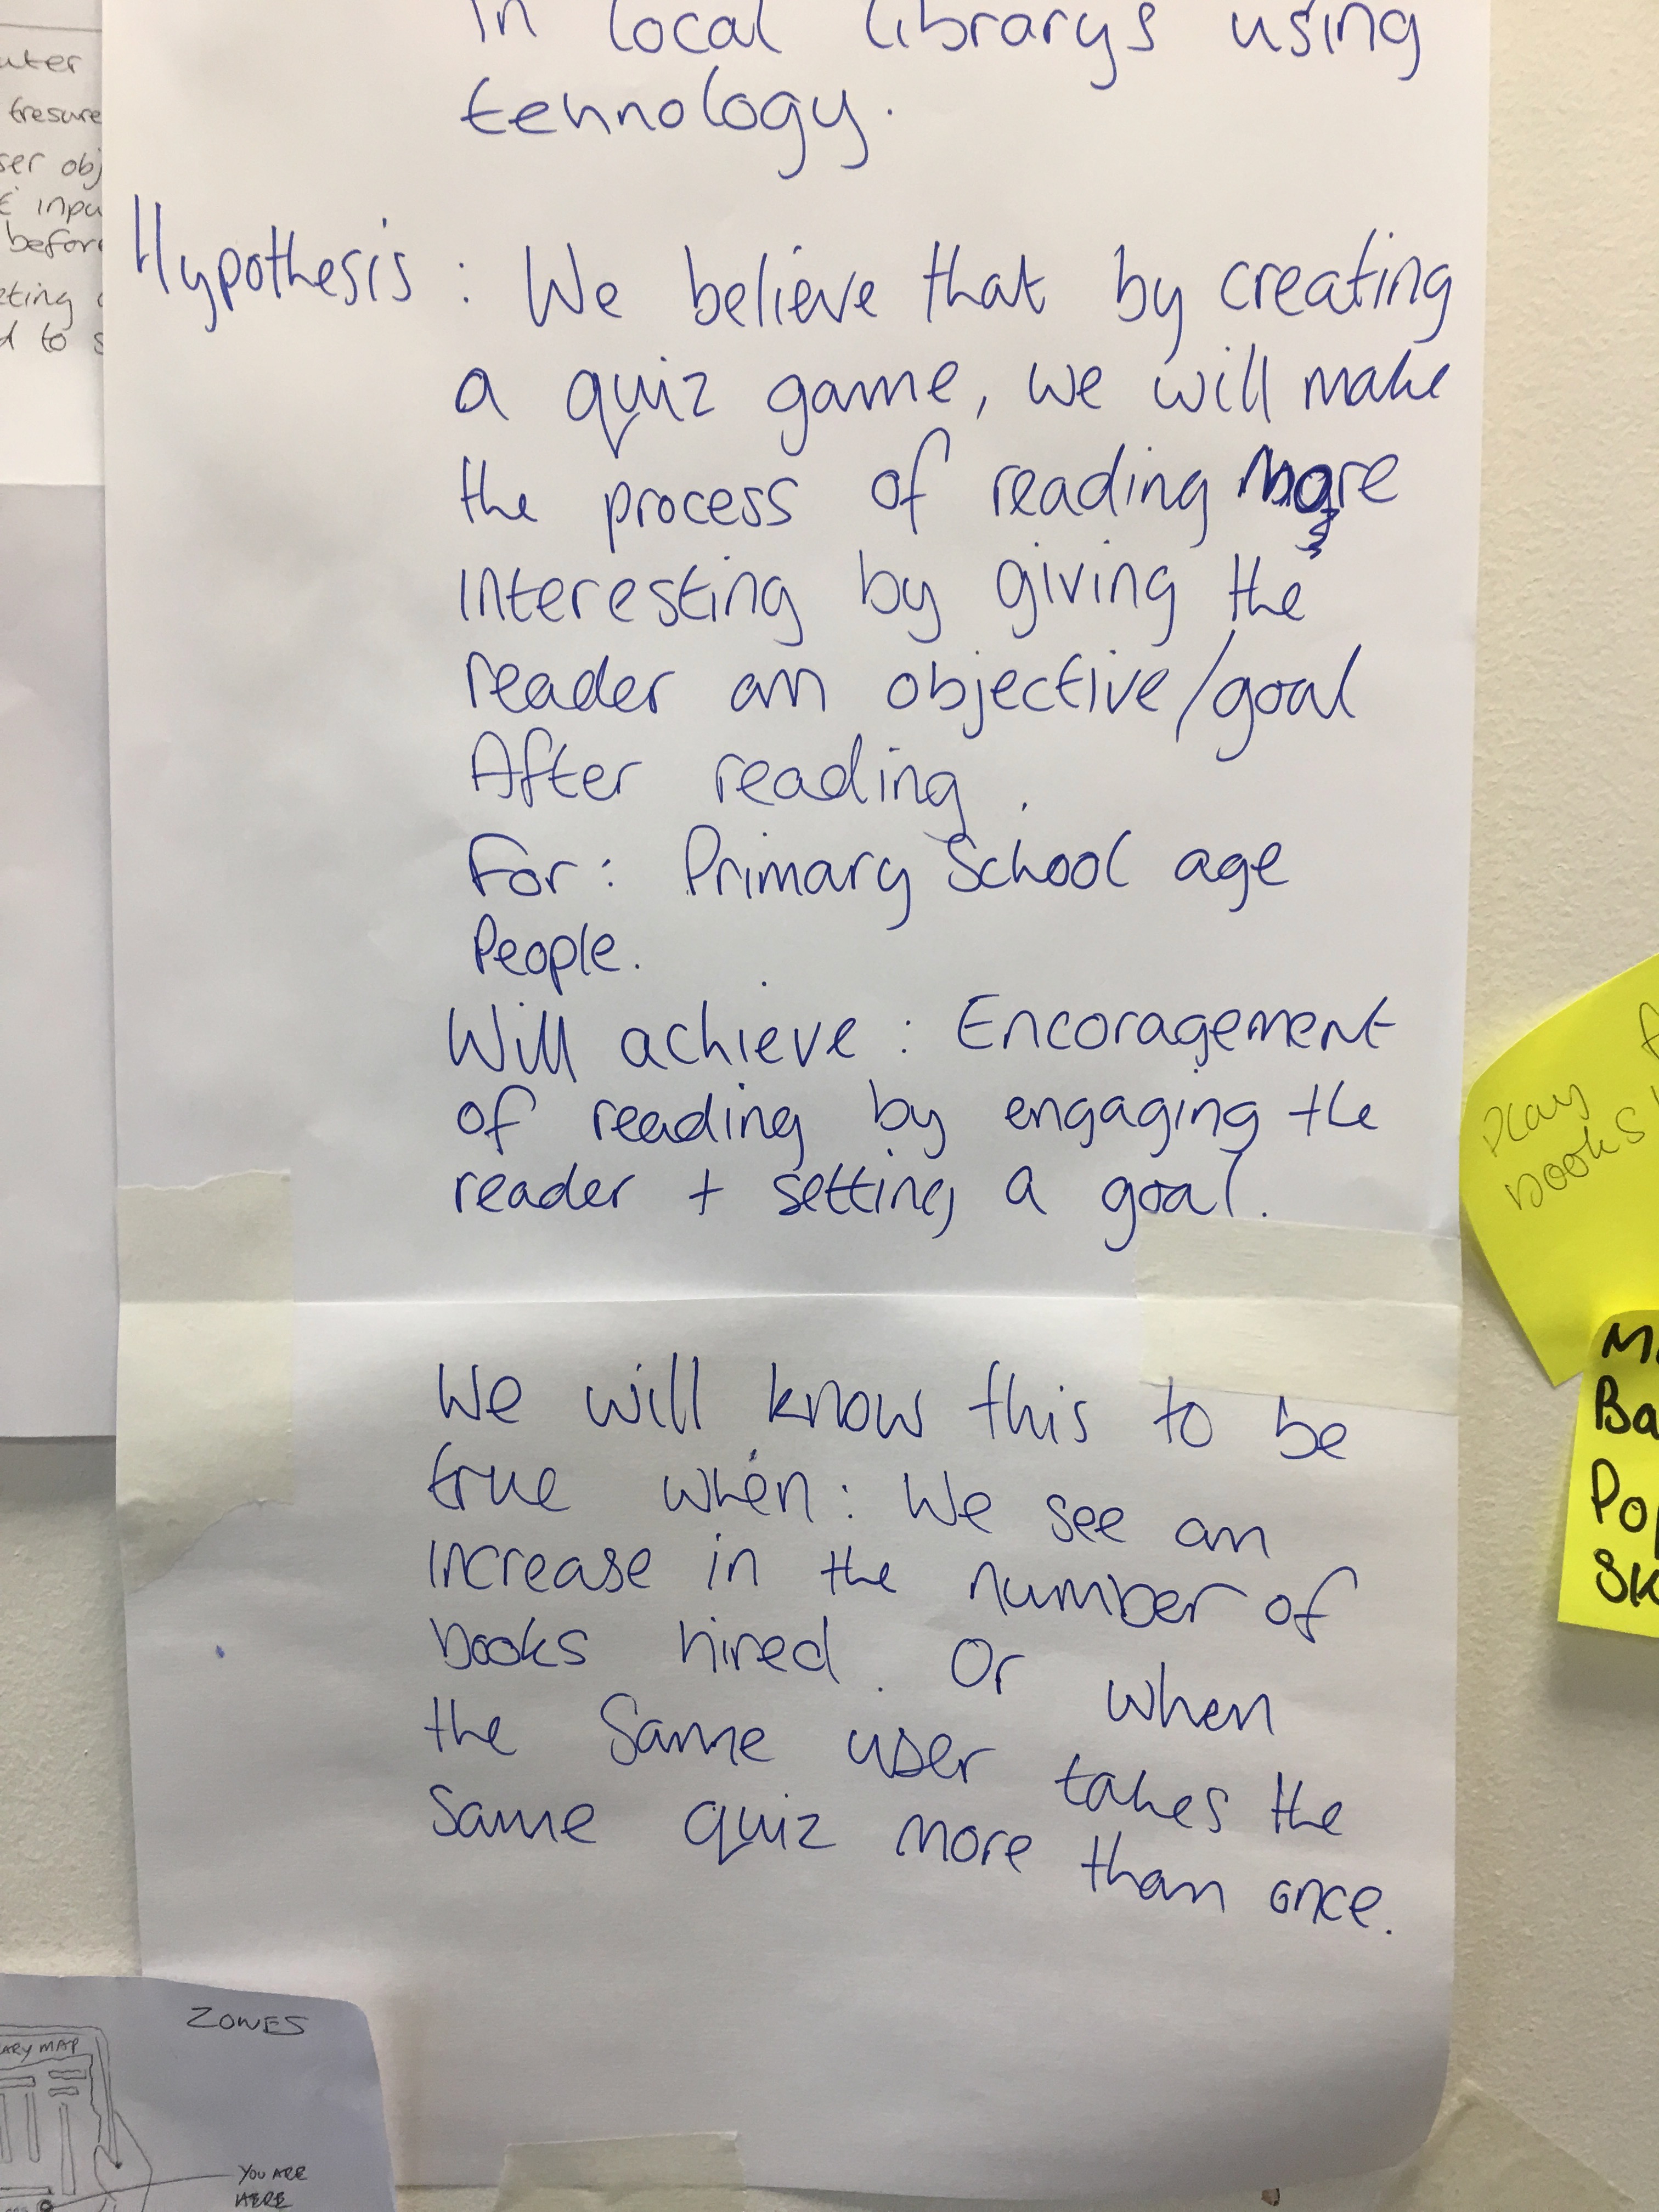 In local librarys using
tehnology.
Hypothesis : We believe that by creating
a quiz game, we will make
the process of reading more
interesting by giving the
reader an objective/goal
After reading.
For: Primary School age
People.
Will achieve : Encoragement
of reading by engaging the
reader + setting a goal.
We will know this to be
true when: We see an
increase in the number of
books hired. Or when
the same user takes the
same quiz more than once.
tresure
ser obj
inpu
before
to s
Play
books
Ba
Po
Sk
ZONES
ARY MAP
YOU ARE
HERE